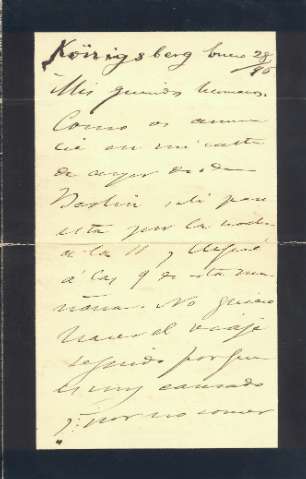 Königsberg Enero 28/95
Mis queridos hermanos.
Como os anun
cié en mi carta
de ayer desde
Berlin salí para
esta por la noche
a las 11 y llegué
á las 9 de esta ma
ñana. No quiero
hacer el viaje
seguido porque
es muy cansado
y por no comer